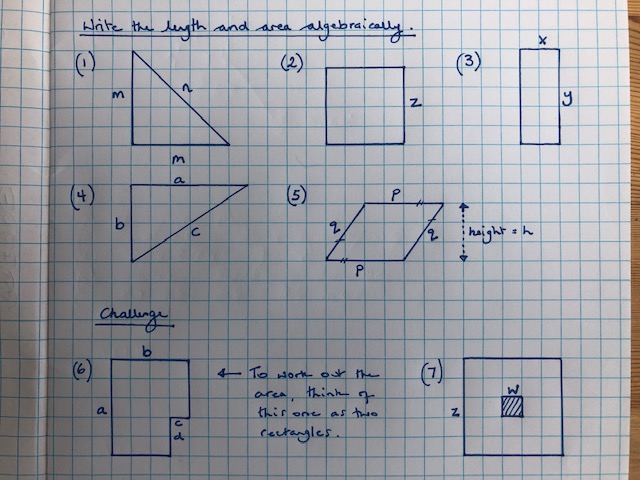 Write the length and area algebraically.
(1)
m
n
m
(2)
z
(3)
x
y
(4)
a
b
c
(5)
p
q
q
p
height = h
Challenge
(6)
b
a
c
d
← To work out the
area, think of
this one as two
rectangles.
(7)
w
z